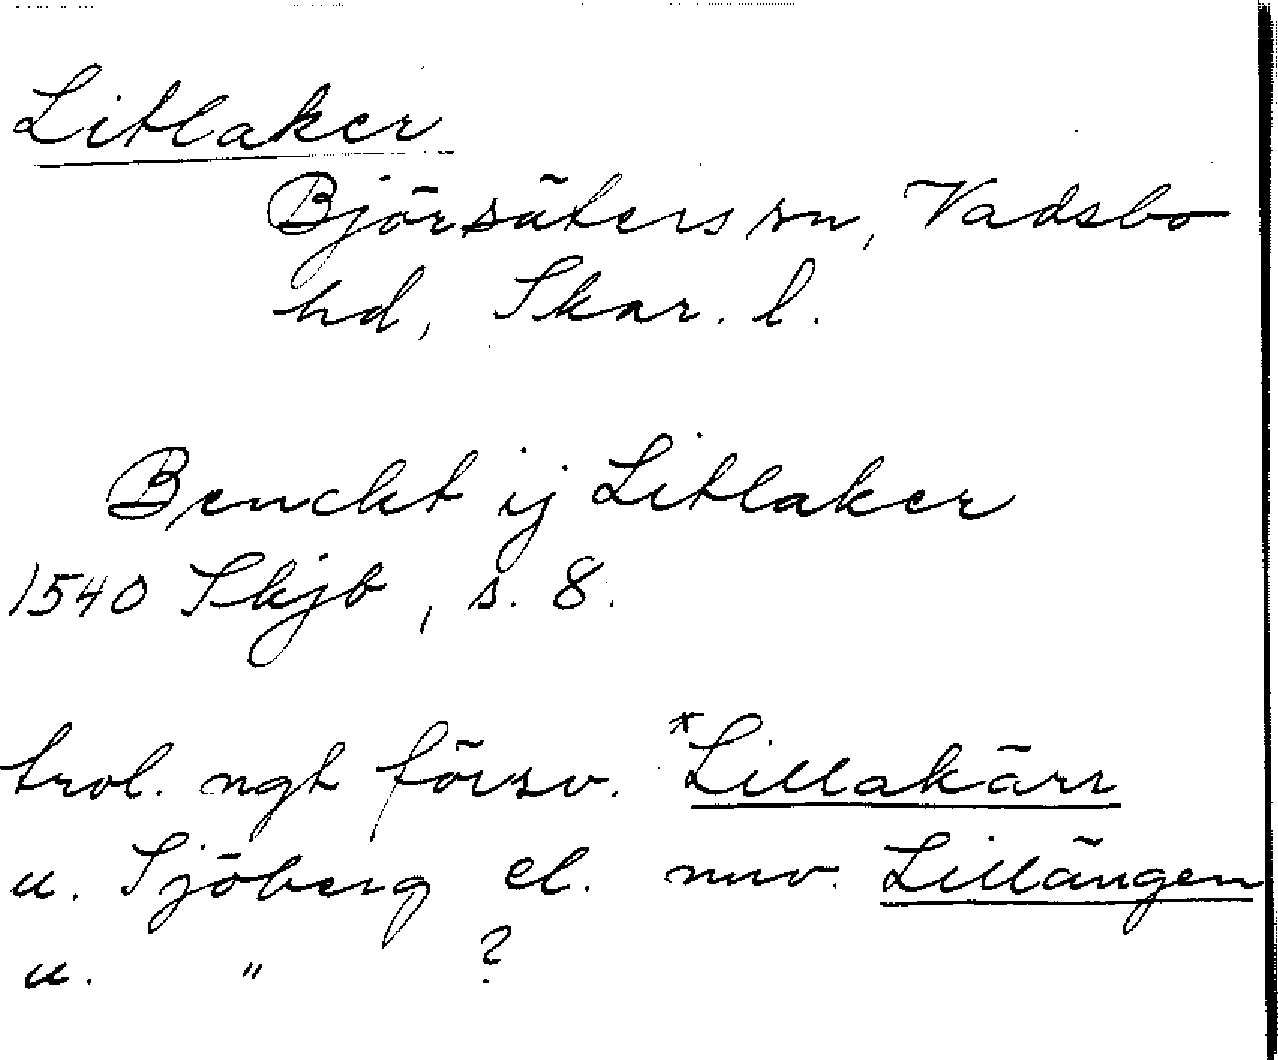 Litlaker
Björsäters sn, Vadsbo
hd, Skar. l.
Benckt ij Litlaker
1540 Skjb, s. 8.
trol. ngt försv. *Lillakärr
u. Sjöberg el. nuv. Lillängen
u. " ?